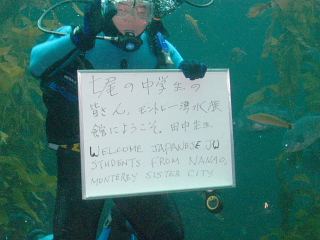 七尾の中学生の
皆さん、モントレー湾水族
館にようこそ。田中先生
WELCOME JAPANESE JH
STUDENTS FROM NANAO,
MONTEREY SISTER CITY